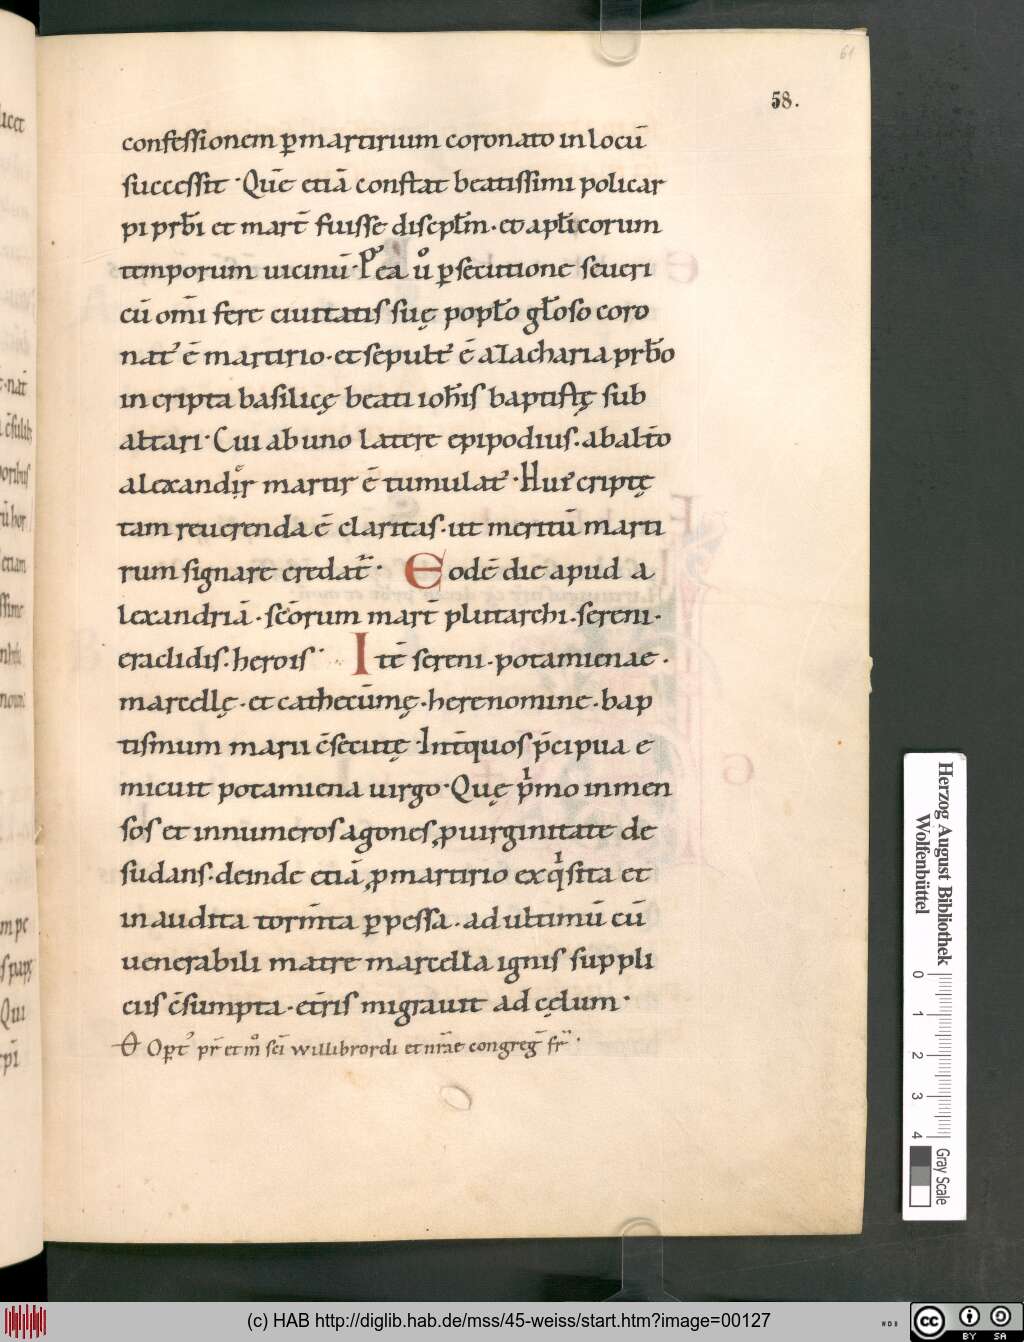 61
58.
confessionem ꝑmartirium coronato in locū
successit · Quē etiā constat beatissimi policar
pi prb̄i et mart̄ fuisse discipl̄m · et apl̄icorum
temporum uicinū · P᷒ea uͦ ꝑsecutione seueri
cū om̄i fere ciuitatis suę popl̄o gl̄oso coro
nat᷒ ē martirio · et sepult᷒ ē a zacharia prb̄o
in cripta basilicę beati ioh̄is baptistę sub
altari · Cui ab uno latere epipodius · ab alt̄o
alexander martir ē tumulat᷒ · Hui᷒ criptę
tam reuerenda ē claritas · ut meritū marti
rum signare credat᷑ · Eodē die apud a
lexandriā · sc̄orum mart̄ plutarchi · sereni ·
eraclidis · herois · Itē sereni · potamienae ·
marcellę · et cathecūmę · here nomine · bap
tismum martirii c̄secutę · Int̄ quos p̄cipua e
micuit potamiena uirgo · Quę pͥmo inmen
sos et innumeros agones, ꝓ uirginitate de
sudans · deinde etiā, ꝓ martirio exqͥsita et
inaudita torm̄ta ꝑpessa · ad ultimū cū
uenerabili matre marcella ignis suppli
ciis c̄sumpta · et̄ris migrauit ad cęlum ·
Ꝋ Opt᷒ pr̄ et mͦ sc̄i willibrordi et nr̄ae congreḡ fr̄ ·
Herzog August Bibliothek
Wolfenbüttel
0 1 2 3 4
Gray Scale
(c) HAB http://diglib.hab.de/mss/45-weiss/start.htm?image=00127
WDB
cc BY SA